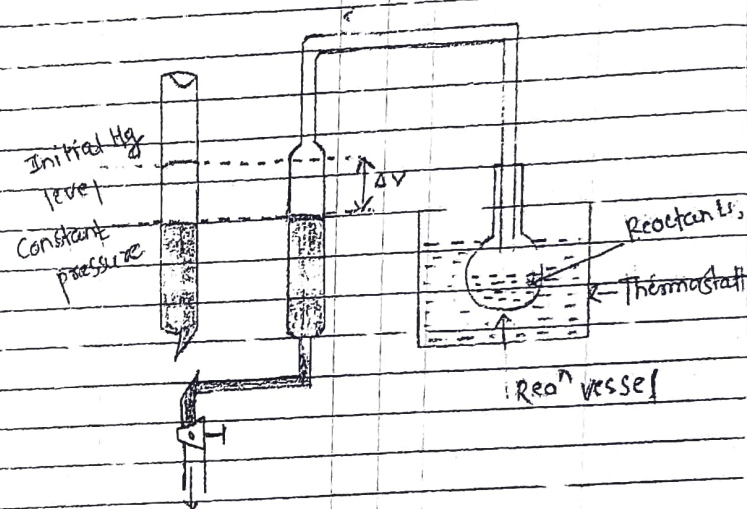 Initial Hg
level
Constant
pressure
ΔV
Reactants,
Thermostatt
Reaⁿ vessel